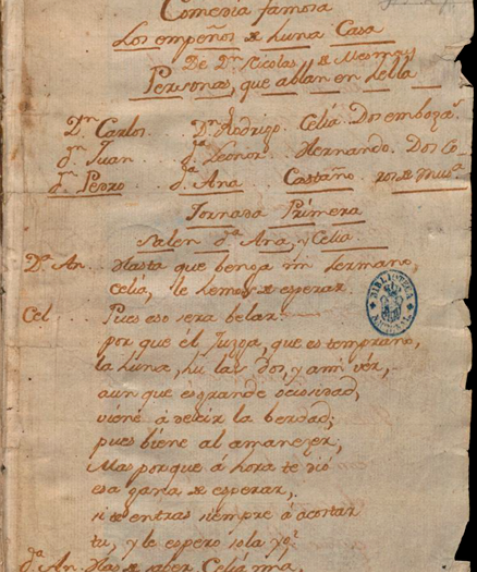 Comedia famosa
Los empeños de Luna Casa
De Dn. Nicolas de Mesmay
Personas, que ablan en hella
Dn. Carlos. Dn. Rodrigo. Celia. Dos emboza.s
Dn. Juan da. Leonor. Hernando. Dos Co
Dn. Pedro da. Ana Castaño ros de mus.a
Jornada Primera
Salen da. Ana, y Celia
Da. An. Hasta que benga mi hermano,
Celia, le hemos de esperar.
Cel Pues eso sera belar.
por que él Juzga, que es temprano,
la huna, hu las dos, y ami vér,
aun que es grande ociosidad,
viene á decir la berdad;
pues biene al amanezer;
Mas porque á hora te dió
esa gana de esperar,
si te entras siempre á acostar
tu, y le espero sola yo?
da. An. Has de saber Celia mia,
BIBLIOTECA NACIONAL